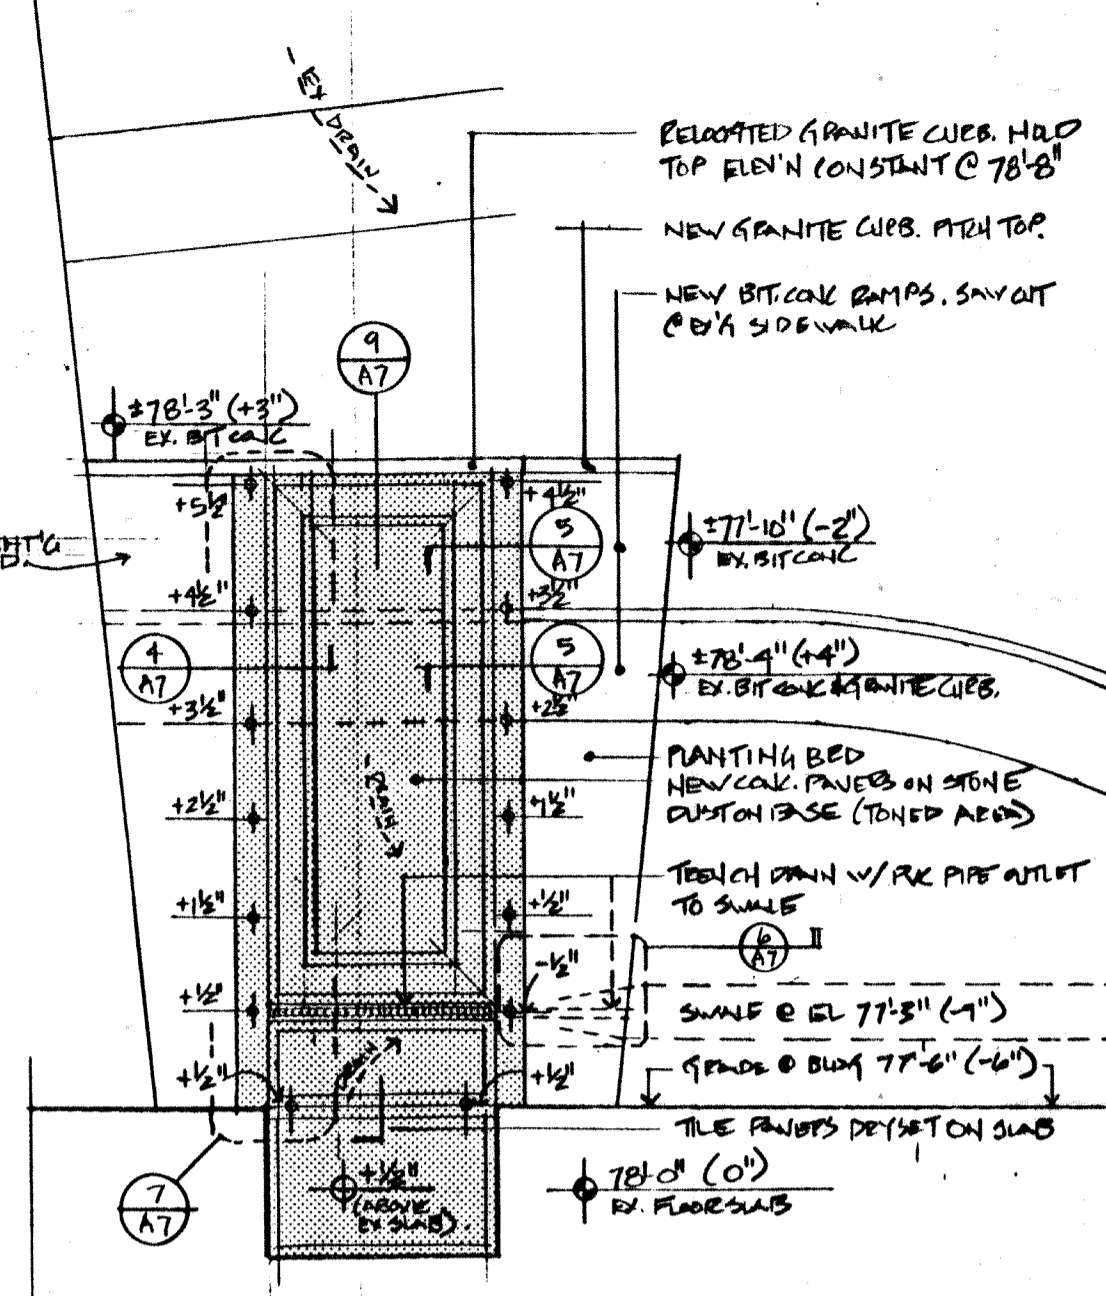 EX DRAIN
RELOCATED GRANITE CURB. HOLD
TOP ELEV'N CONSTANT @ 78'-8"
NEW GRANITE CURB. PITCH TOP.
NEW BIT. CONC RAMPS. SAWCUT
@ EX'G SIDEWALK
9
A7
±78'-3" (+3")
EX. BIT CONC
+5½"
+4½"
5
A7
±77'-10" (-2")
EX. BIT CONC
+4½"
+3½"
4
A7
5
A7
±78'-4" (+4")
EX. BIT CONC & GRANITE CURB.
+3½"
+2½"
PLANTING BED
NEW CONC. PAVERS ON STONE
DUST ON BASE (TONED AREA)
DRAIN
+2½"
+1½"
TRENCH DRAIN W/ PVC PIPE OUTLET
TO SWALE
+1½"
+½"
6
A7
-½"
+½"
SWALE @ EL 77'-3" (-9")
GRADE @ BLDG 77'-6" (-6")
DRAIN
+½"
+½"
TILE PAVERS DRYSET ON SLAB
7
A7
+½"
(ABOVE
EX SLAB).
78'-0" (0")
EX. FLOOR SLAB